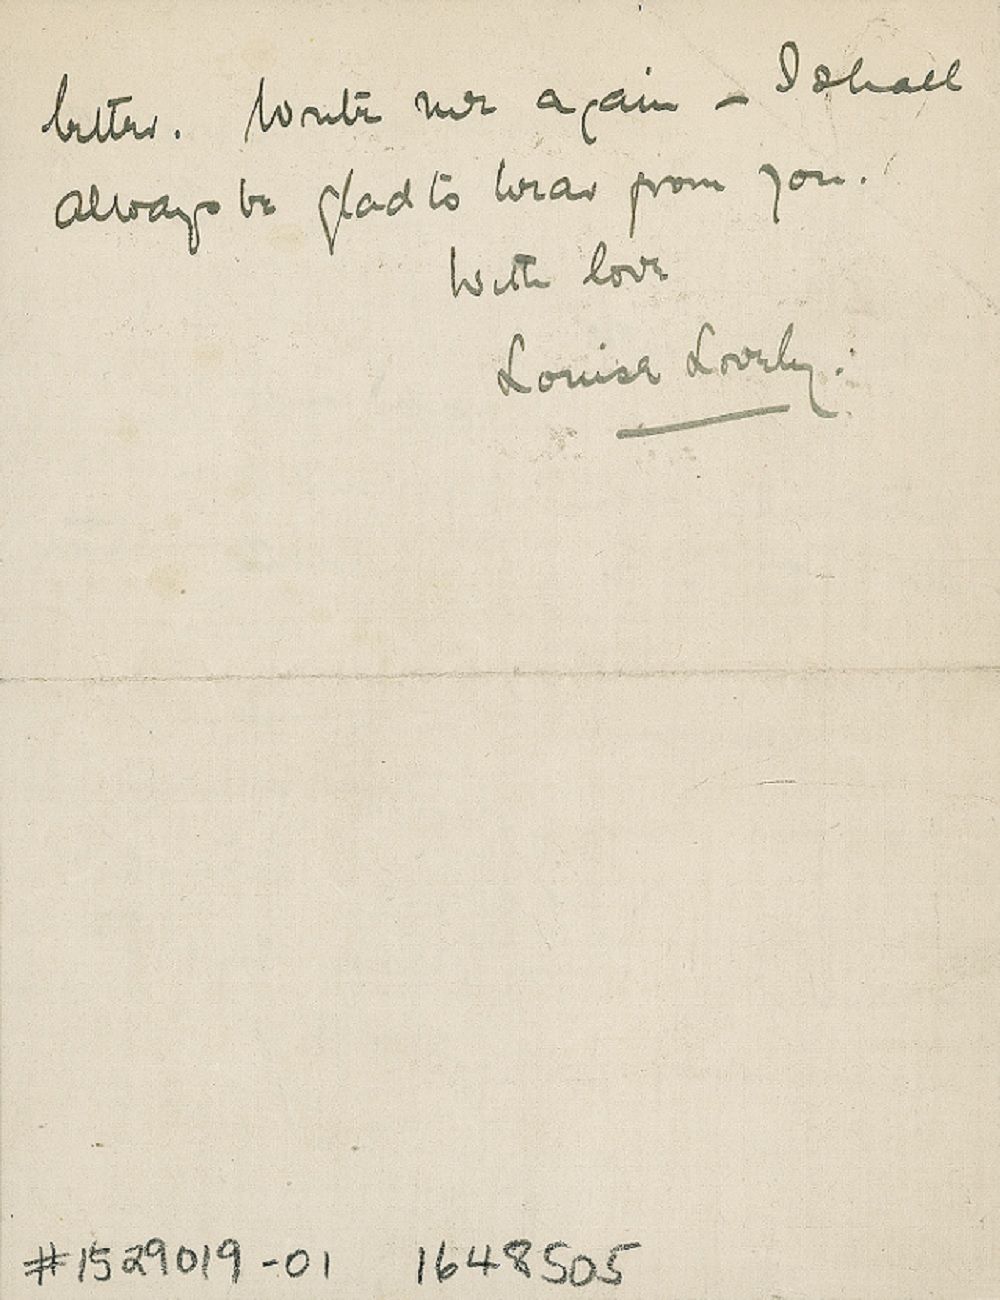 better. Write me again – I shall
always be glad to hear from you.
With love
Louise Lovely.
#1529019-01 1648505